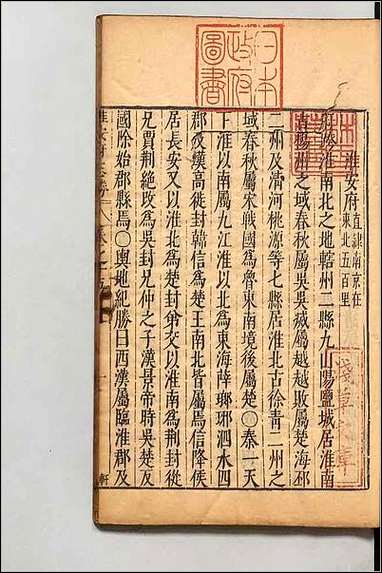 日本
政府
圖書
淮安府直隷南京在
東北五百里
府跨淮南北之地轄州二縣九山陽鹽城居淮南
古揚州之域春秋屬吳吳滅屬越越敗屬楚海邳
二州及清河桃源等七縣居淮北古徐青二州之
域春秋屬宋戰國為魯東南境後屬楚〇秦一天
下淮以南屬九江淮以北為東海薛瑯琊泗水四
郡後漢高徙封韓信為楚王南北皆屬焉信降侯
居長安又以淮北為楚封弟交以淮南為荆封從
兄賈荆絶攺為吳封兄仲之子漢景帝時吳楚反
國除始郡縣焉〇輿地紀勝曰西漢屬臨淮郡及
淺草文庫
軒